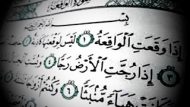 بِسْـ
إِذَا وَقَعَتِ ٱلْوَاقِعَةُ ١ لَيْسَ لِوَقْعَتِهَا
٣ إِذَا رُجَّتِ ٱلْأَرْضُ رَجًّا
هَبَآءً مُّنۢبَثًّا ٦